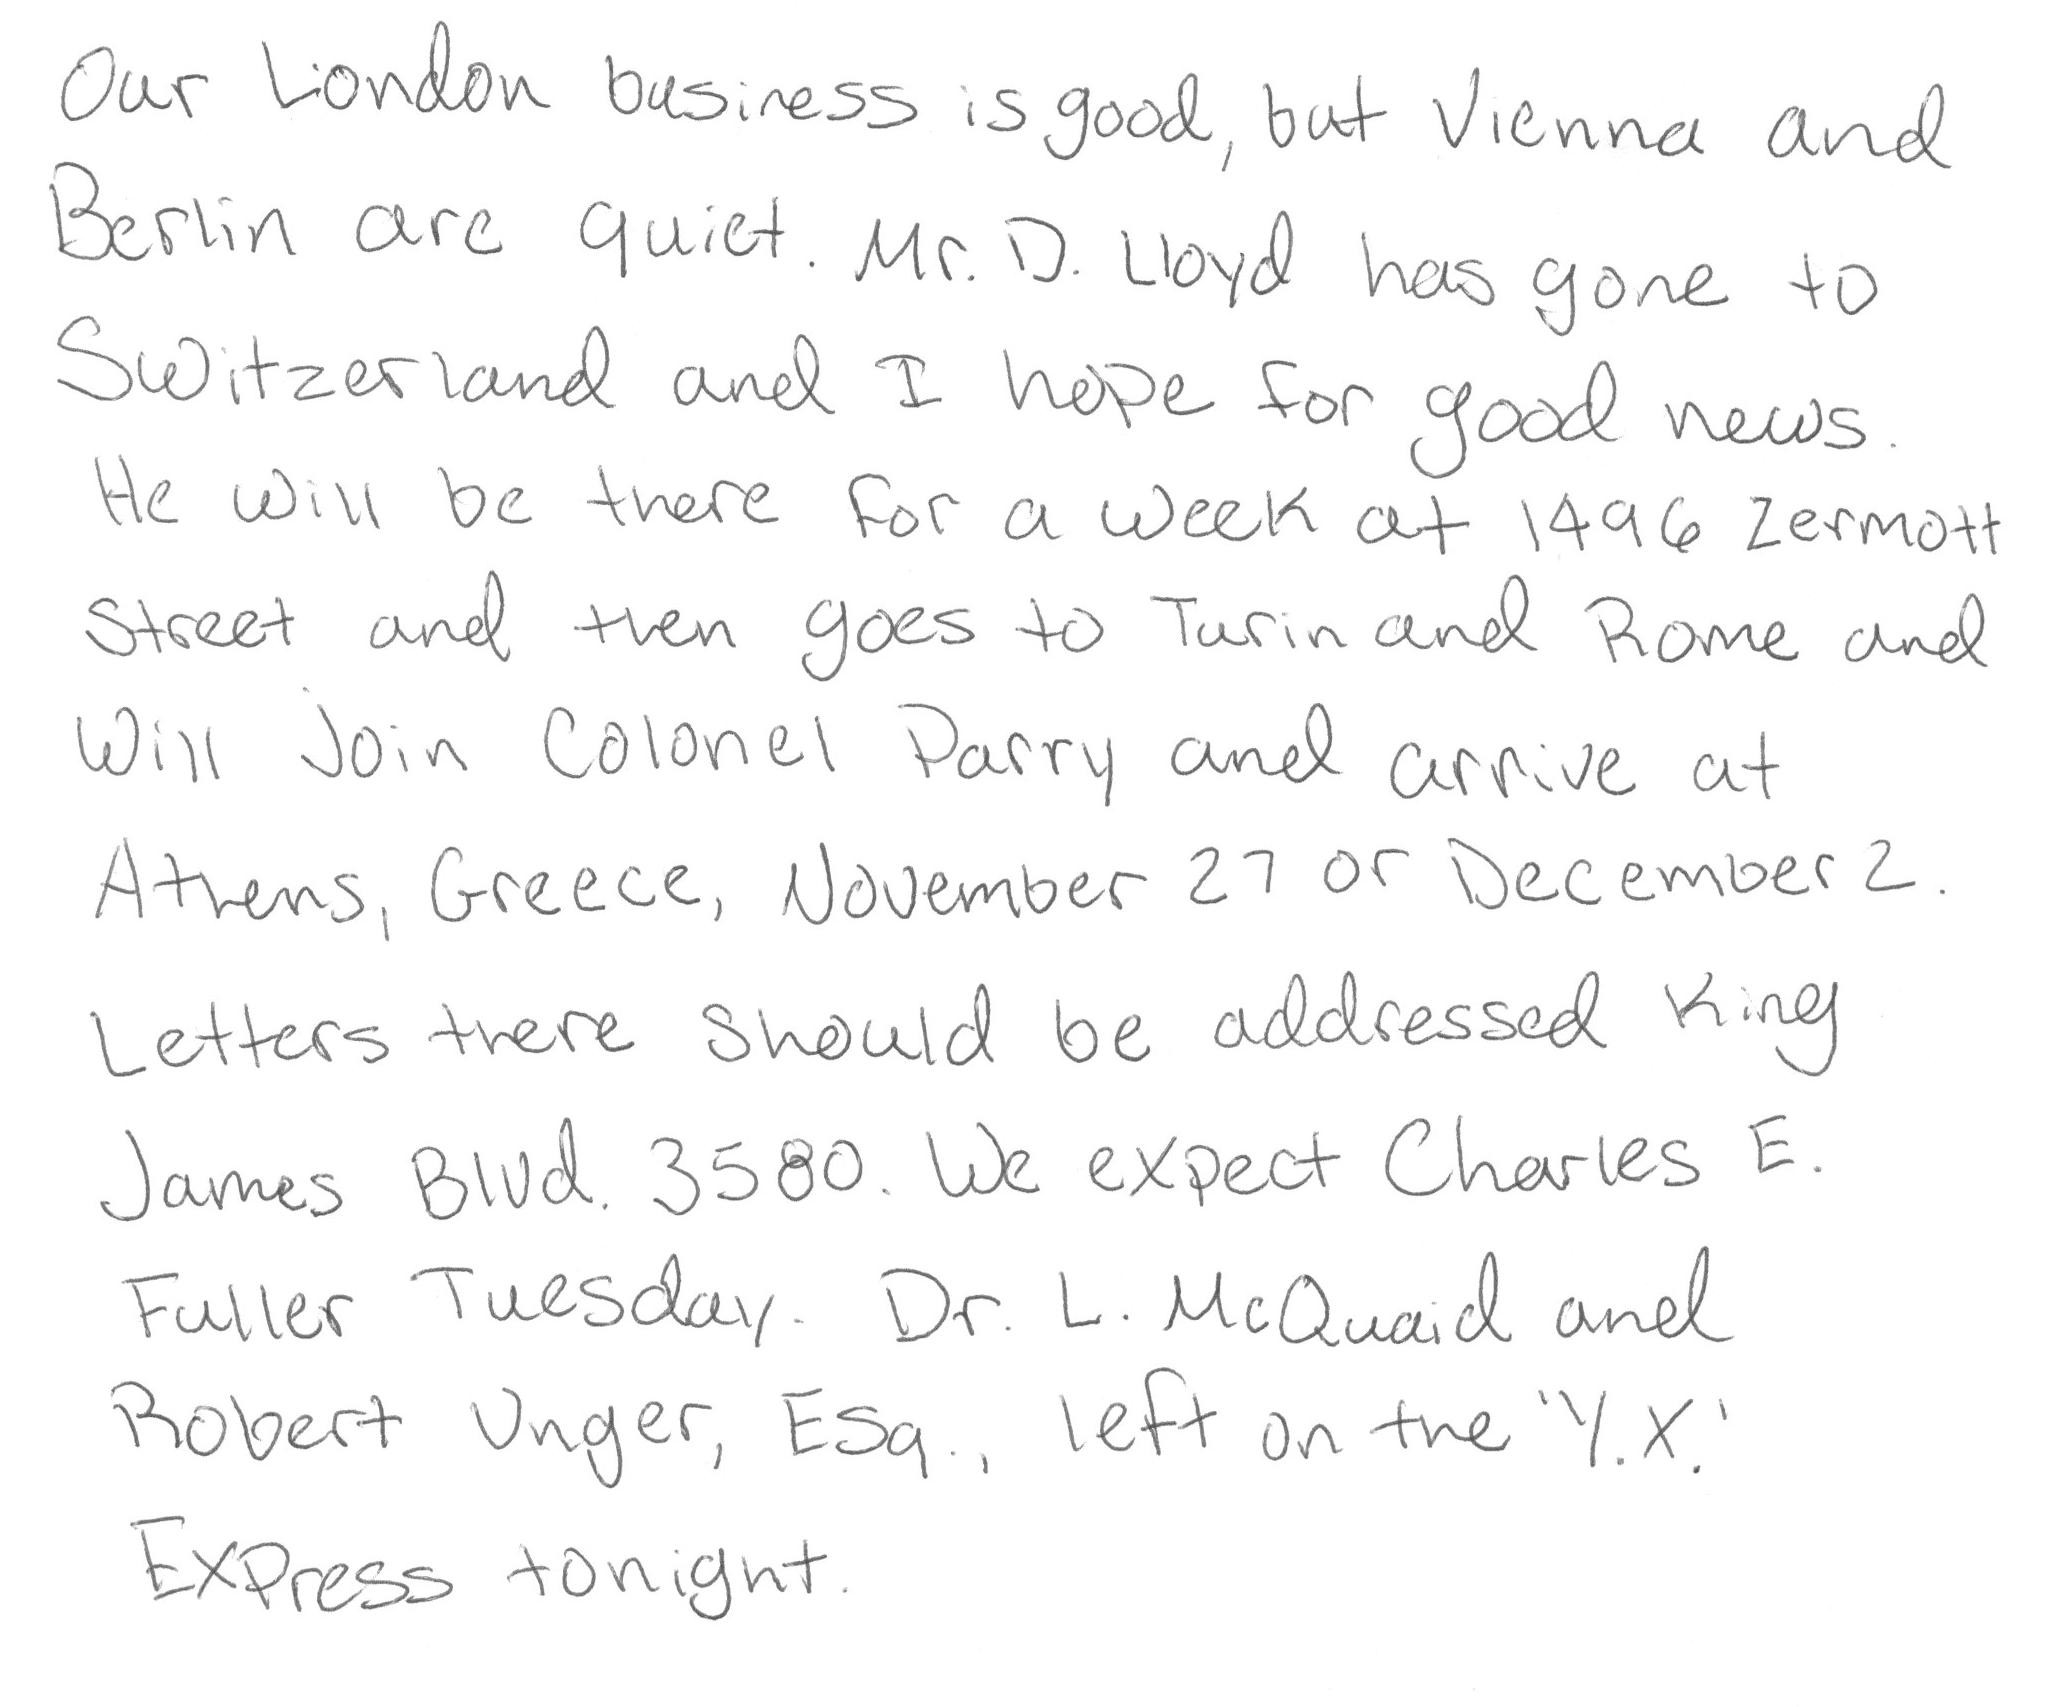 Our London business is good, but Vienna and
Berlin are quiet. Mr. D. Lloyd has gone to
Switzerland and I hope for good news.
He will be there for a week at 1496 Zermott
Street and then goes to Turin and Rome and
will join Colonel Parry and arrive at
Athens, Greece, November 27 or December 2.
Letters there should be addressed King
James Blvd. 3580. We expect Charles E.
Fuller Tuesday. Dr. L. McQuaid and
Robert Unger, Esq., left on the 'Y.X.'
Express tonight.